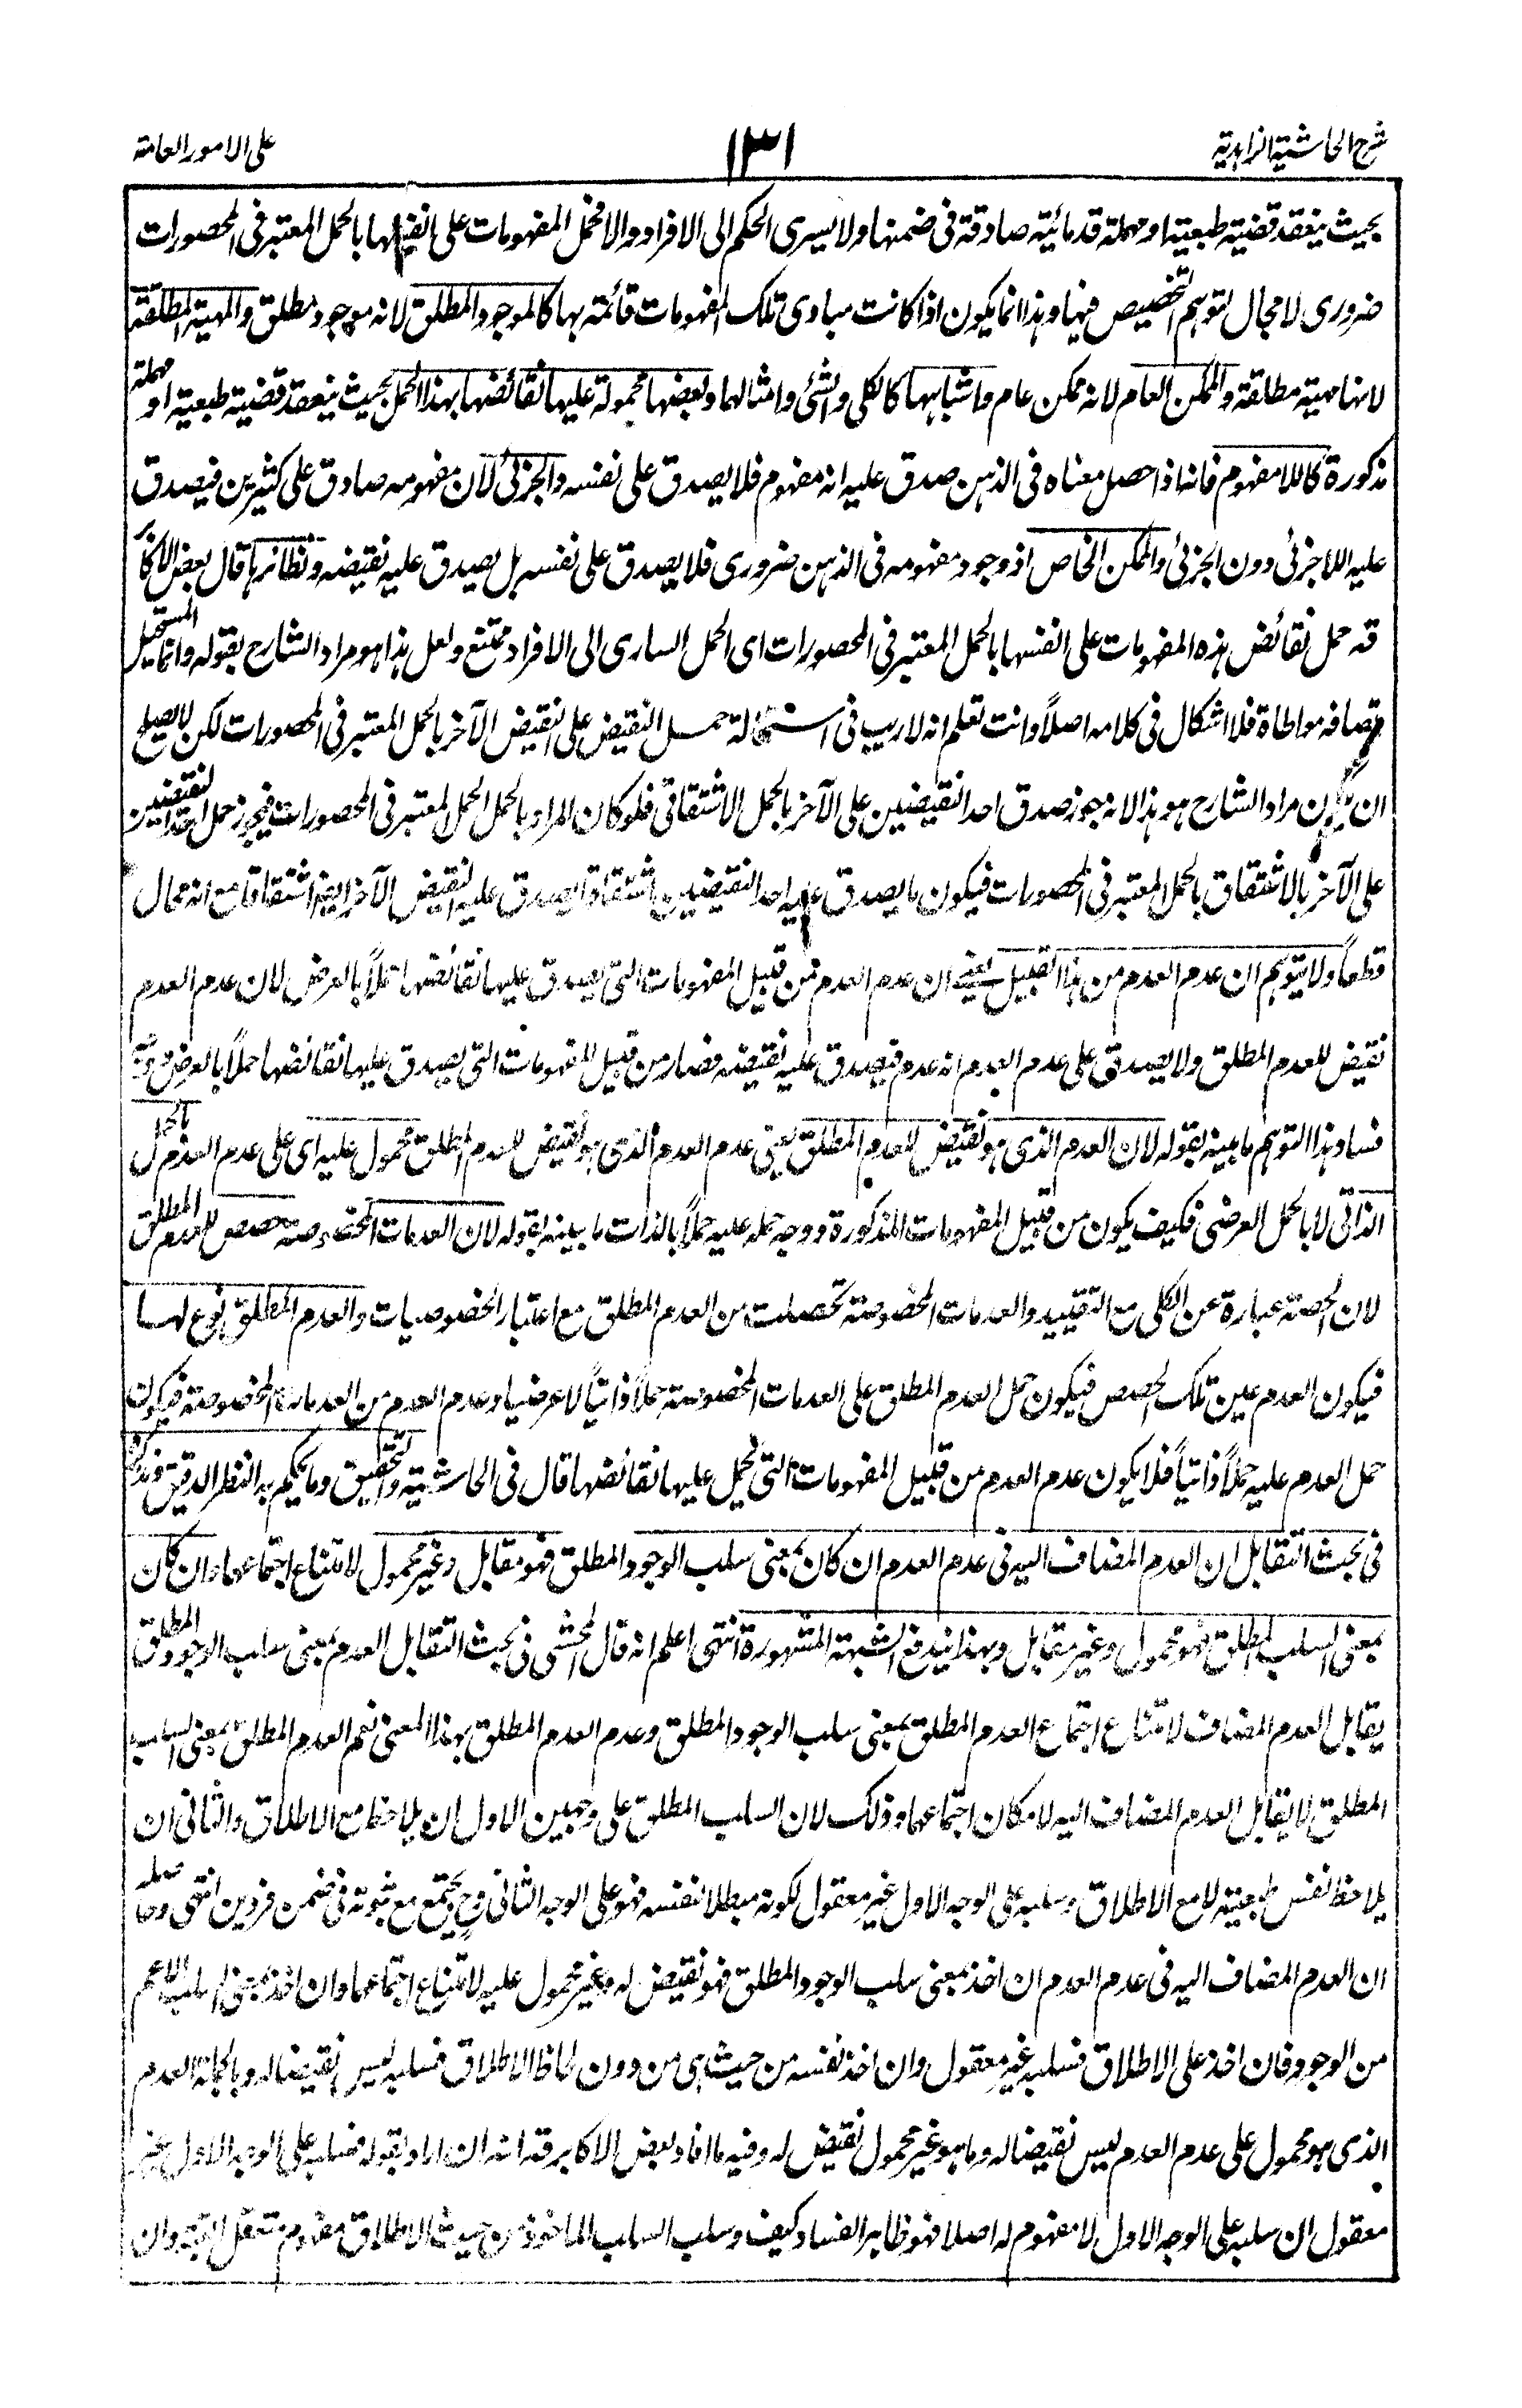 شرح الحاشية الزاهدية
١٣١
على الامور العامة
بحيث ينعقد قضية طبعية او مهملة قدمائية صادقة فى ضمنها ولا يسرى الحكم الى الافراد والا فحمل المفهومات على انفسها بالحمل المعتبر فى المحصورات
ضرورى لا مجال لتوهم التخصيص فيها وهذا انما يكون اذا كانت مبادى تلك المفهومات قائمة بها كالموجود المطلق لانه موجود مطلق والمهية المطلقة
لانها مهية مطلقة والممكن العام لانه ممكن عام واشباهها كالكلى والشئ وامثالهما وبعضها محمولة عليها نقائضها بهذا الحمل بحيث ينعقد قضية طبعية او مهملة
مذكورة كاللا مفهوم فانه اذا حصل معناه فى الذهن صدق عليه انه مفهوم فلا يصدق على نفسه والجزئى لان مفهومه صادق على كثيرين فيصدق
عليه اللاجزئى دون الجزئى والممكن الخاص اذ وجود مفهومه فى الذهن ضرورى فلا يصدق على نفسه بل يصدق عليه نقيضه ونظائرها قال بعض الاكابر
قد حمل نقائض هذه المفهومات على انفسها بالحمل المعتبر فى المحصورات اى الحمل السارى الى الافراد ممتنع ولعل هذا هو مراد الشارح بقوله وانما المستحيل
اتصافه مواطاة فلا اشكال فى كلامه اصلاً وانت تعلم انه لا ريب فى استحالة حمل النقيض على النقيض الآخر بالحمل المعتبر فى المحصورات لكن لا يصلح
ان يكون مراد الشارح هو هذا لانه جوز صدق احد النقيضين على الآخر بالحمل الاشتقاقى فلو كان المراد بالحمل الحمل المعتبر فى المحصورات فيجوز حمل احد النقيضين
على الآخر بالاشتقاق بالحمل المعتبر فى المحصورات فيكون ما يصدق عليه احد النقيضين اشتقاقا يصدق عليه النقيض الآخر ايضا اشتقاقا مع انه محال
قطعاً ولا يتوهم ان عدم العدم من هذا القبيل يعنى ان عدم العدم من قبيل المفهومات التى يصدق عليها نقائضها حملاً بالعرض لان عدم العدم
نقيض للعدم المطلق ولا يصدق على عدم العدم انه عدم فيصدق عليه نقيضه فصار من قبيل المفهومات التى يصدق عليها نقائضها حملاً بالعرض ووجه
فساد هذا التوهم ما بينه بقوله لان العدم الذى هو نقيض للعدم المطلق يعنى عدم العدم الذى هو نقيض للعدم المطلق محمول عليه اى على عدم العدم بالحمل
الذاتى لا بالحمل العرضى فكيف يكون من قبيل المفهومات المذكورة ووجه حمله عليه حملاً بالذات ما بينه بقوله لان العدمات المخصوصة حصص للعدم المطلق
لان الحصة عبارة عن الكلى مع التقييد والعدمات المخصوصة تحصلت من العدم المطلق مع اعتبار الخصوصيات والعدم المطلق نوع لها
فيكون العدم عين تلك الحصص فيكون حمل العدم المطلق على العدمات المخصوصة حملاً ذاتياً لا عرضيا وعدم العدم من العدمات المخصوصة فيكون
حمل العدم عليه حملاً ذاتياً فلا يكون عدم العدم من قبيل المفهومات التى يحمل عليها نقائضها قال فى الحاشية والتحقيق وما يحكم به النظر الدقيق
فى بحث التقابل ان العدم المضاف اليه فى عدم العدم ان كان بمعنى سلب الوجود المطلق فهو مقابل وغير محمول لامتناع اجتماعهما وان كان
بمعنى السلب المطلق فهو محمول وغير مقابل وبهذا يندفع الشبهة المشهورة انتهى اعلم انه قال المحشى فى بحث التقابل العدم بمعنى سلب الوجود المطلق
يقابل العدم المضاف لامتناع اجتماع العدم المطلق بمعنى سلب الوجود المطلق وعدم العدم المطلق بهذا المعنى نعم العدم المطلق بمعنى السلب
المطلق لا يقابل العدم المضاف اليه لامكان اجتماعهما وذلك لان السلب المطلق على وجهين الاول ان يلاحظ مع الاطلاق والثانى ان
يلاحظ نفس طبعيته لا مع الاطلاق وسلبه على الوجه الاول غير معقول لكونه مبطلا لنفسه فهو على الوجه الثانى وح يجتمع مع ثبوته فى ضمن فردين انتهى وحاصله
ان العدم المضاف اليه فى عدم العدم ان اخذ بمعنى سلب الوجود المطلق فهو نقيض له وغير محمول عليه لامتناع اجتماعهما وان اخذ بمعنى السلب الاعم
من الوجود فان اخذ على الاطلاق فسلبه غير معقول وان اخذ نفسه من حيث هى من دون لحاظ الاطلاق فسلبه ليس نقيضا له وبالجملة العدم
الذى هو محمول على عدم العدم ليس نقيضا له وما هو غير محمول نقيض له وفيه ما افاد بعض الاكابر قد انه ان اراد بقوله فسلبه على الوجه الاول غير
معقول ان سلبه على الوجه الاول لا مفهوم له اصلا فهو ظاهر الفساد كيف وسلب السلب الماخوذ من حيث الاطلاق مفهوم متعقل البتة وان